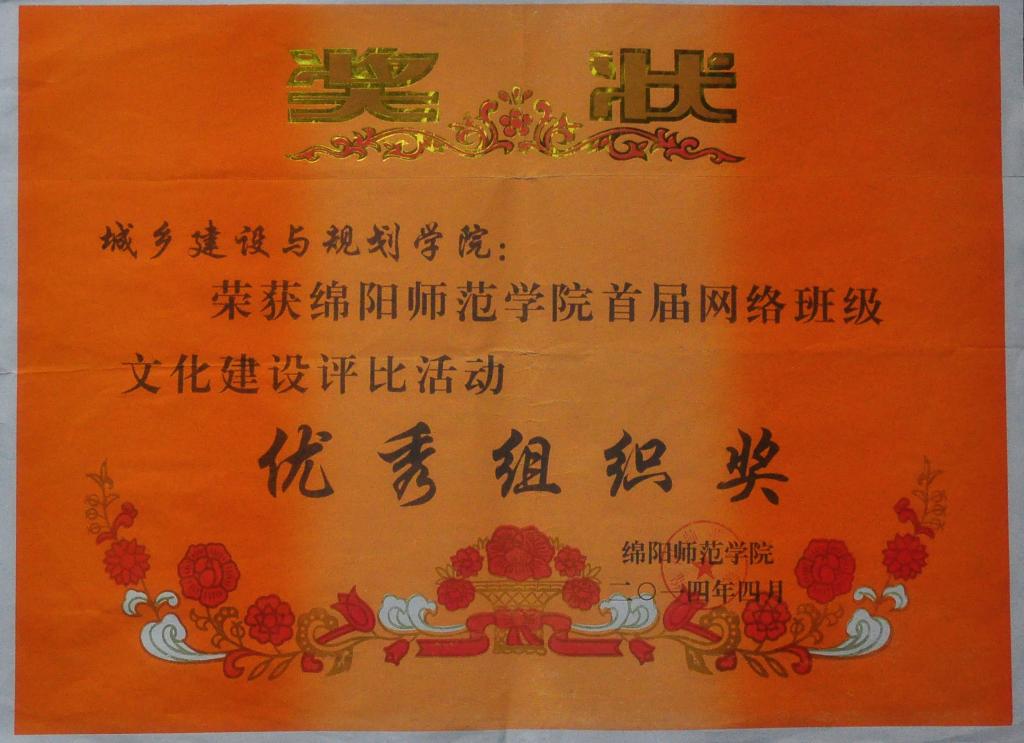 奖状
城乡建设与规划学院：
荣获绵阳师范学院首届网络班级
文化建设评比活动
优秀组织奖
绵阳师范学院
二〇一四年四月